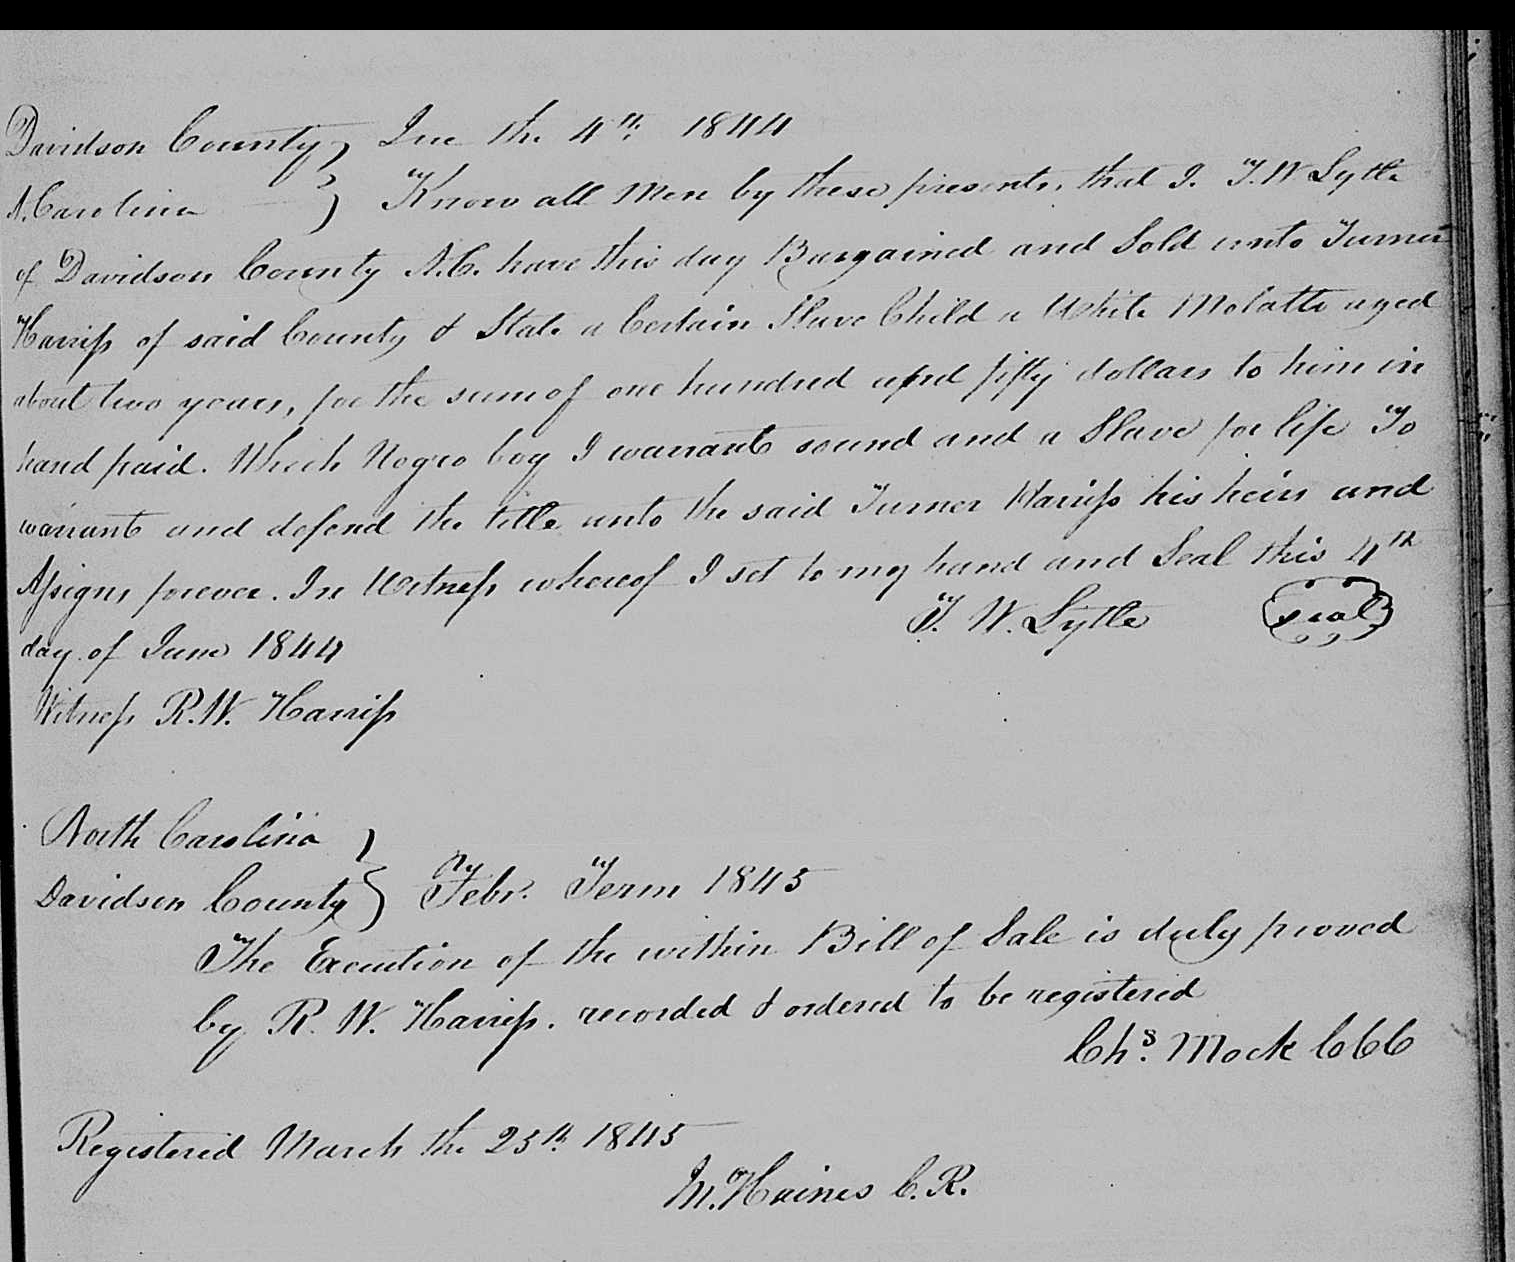 Davidson County } Jue the 4th 1844
N. Carolina } Know all Men by these presents, that I. T. W Lytle
of Davidson County N.C. have this day Bargained and Sold unto Turner
Harriss of said County & State a Certain Slave Child a White Molatto aged
about two years, for the sum of one hundred and fifty dollars to him in
hand paid. Which Negro boy I warrant sound and a Slave for life To
warrant and defend the title unto the said Turner Harriss his heirs and
Assigns forever. In Witness whereof I set to my hand and Seal this 4th
day of June 1844 T. W. Lytle seal
Witness R. W. Harriss
North Carolina }
Davidson County } Febry. Term 1845
The Execution of the within Bill of Sale is duly proved
by R. W. Harriss. recorded & ordered to be registered
Chs. Mock CCC
Registered March the 25th 1845
M. Haines C. R.